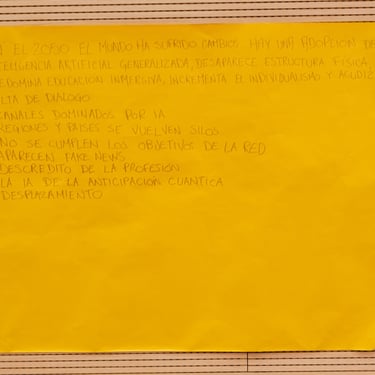 EL 2050 EL MUNDO HA SUFRIDO CAMBIOS HAY UNA ADOPCIÓN DE
TELIGENCIA ARTIFICIAL GENERALIZADA, DESAPARECE ESTRUCTURA FÍSICA,
EDOMINA EDUCACIÓN INMERSIVA, INCREMENTA EL INDIVIDUALISMO Y AGUDIZ
LTA DE DIALOGO
CANALES DOMINADOS POR IA
REGIONES Y PAISES SE VUELVEN SILOS
NO SE CUMPLEN LOS OBJETIVOS DE LA RED
APARECEN FAKE NEWS
DESCREDITO DE LA PROFESIÓN
LA IA DE LA ANTICIPACIÓN CUANTICA
DESPLAZAMIENTO